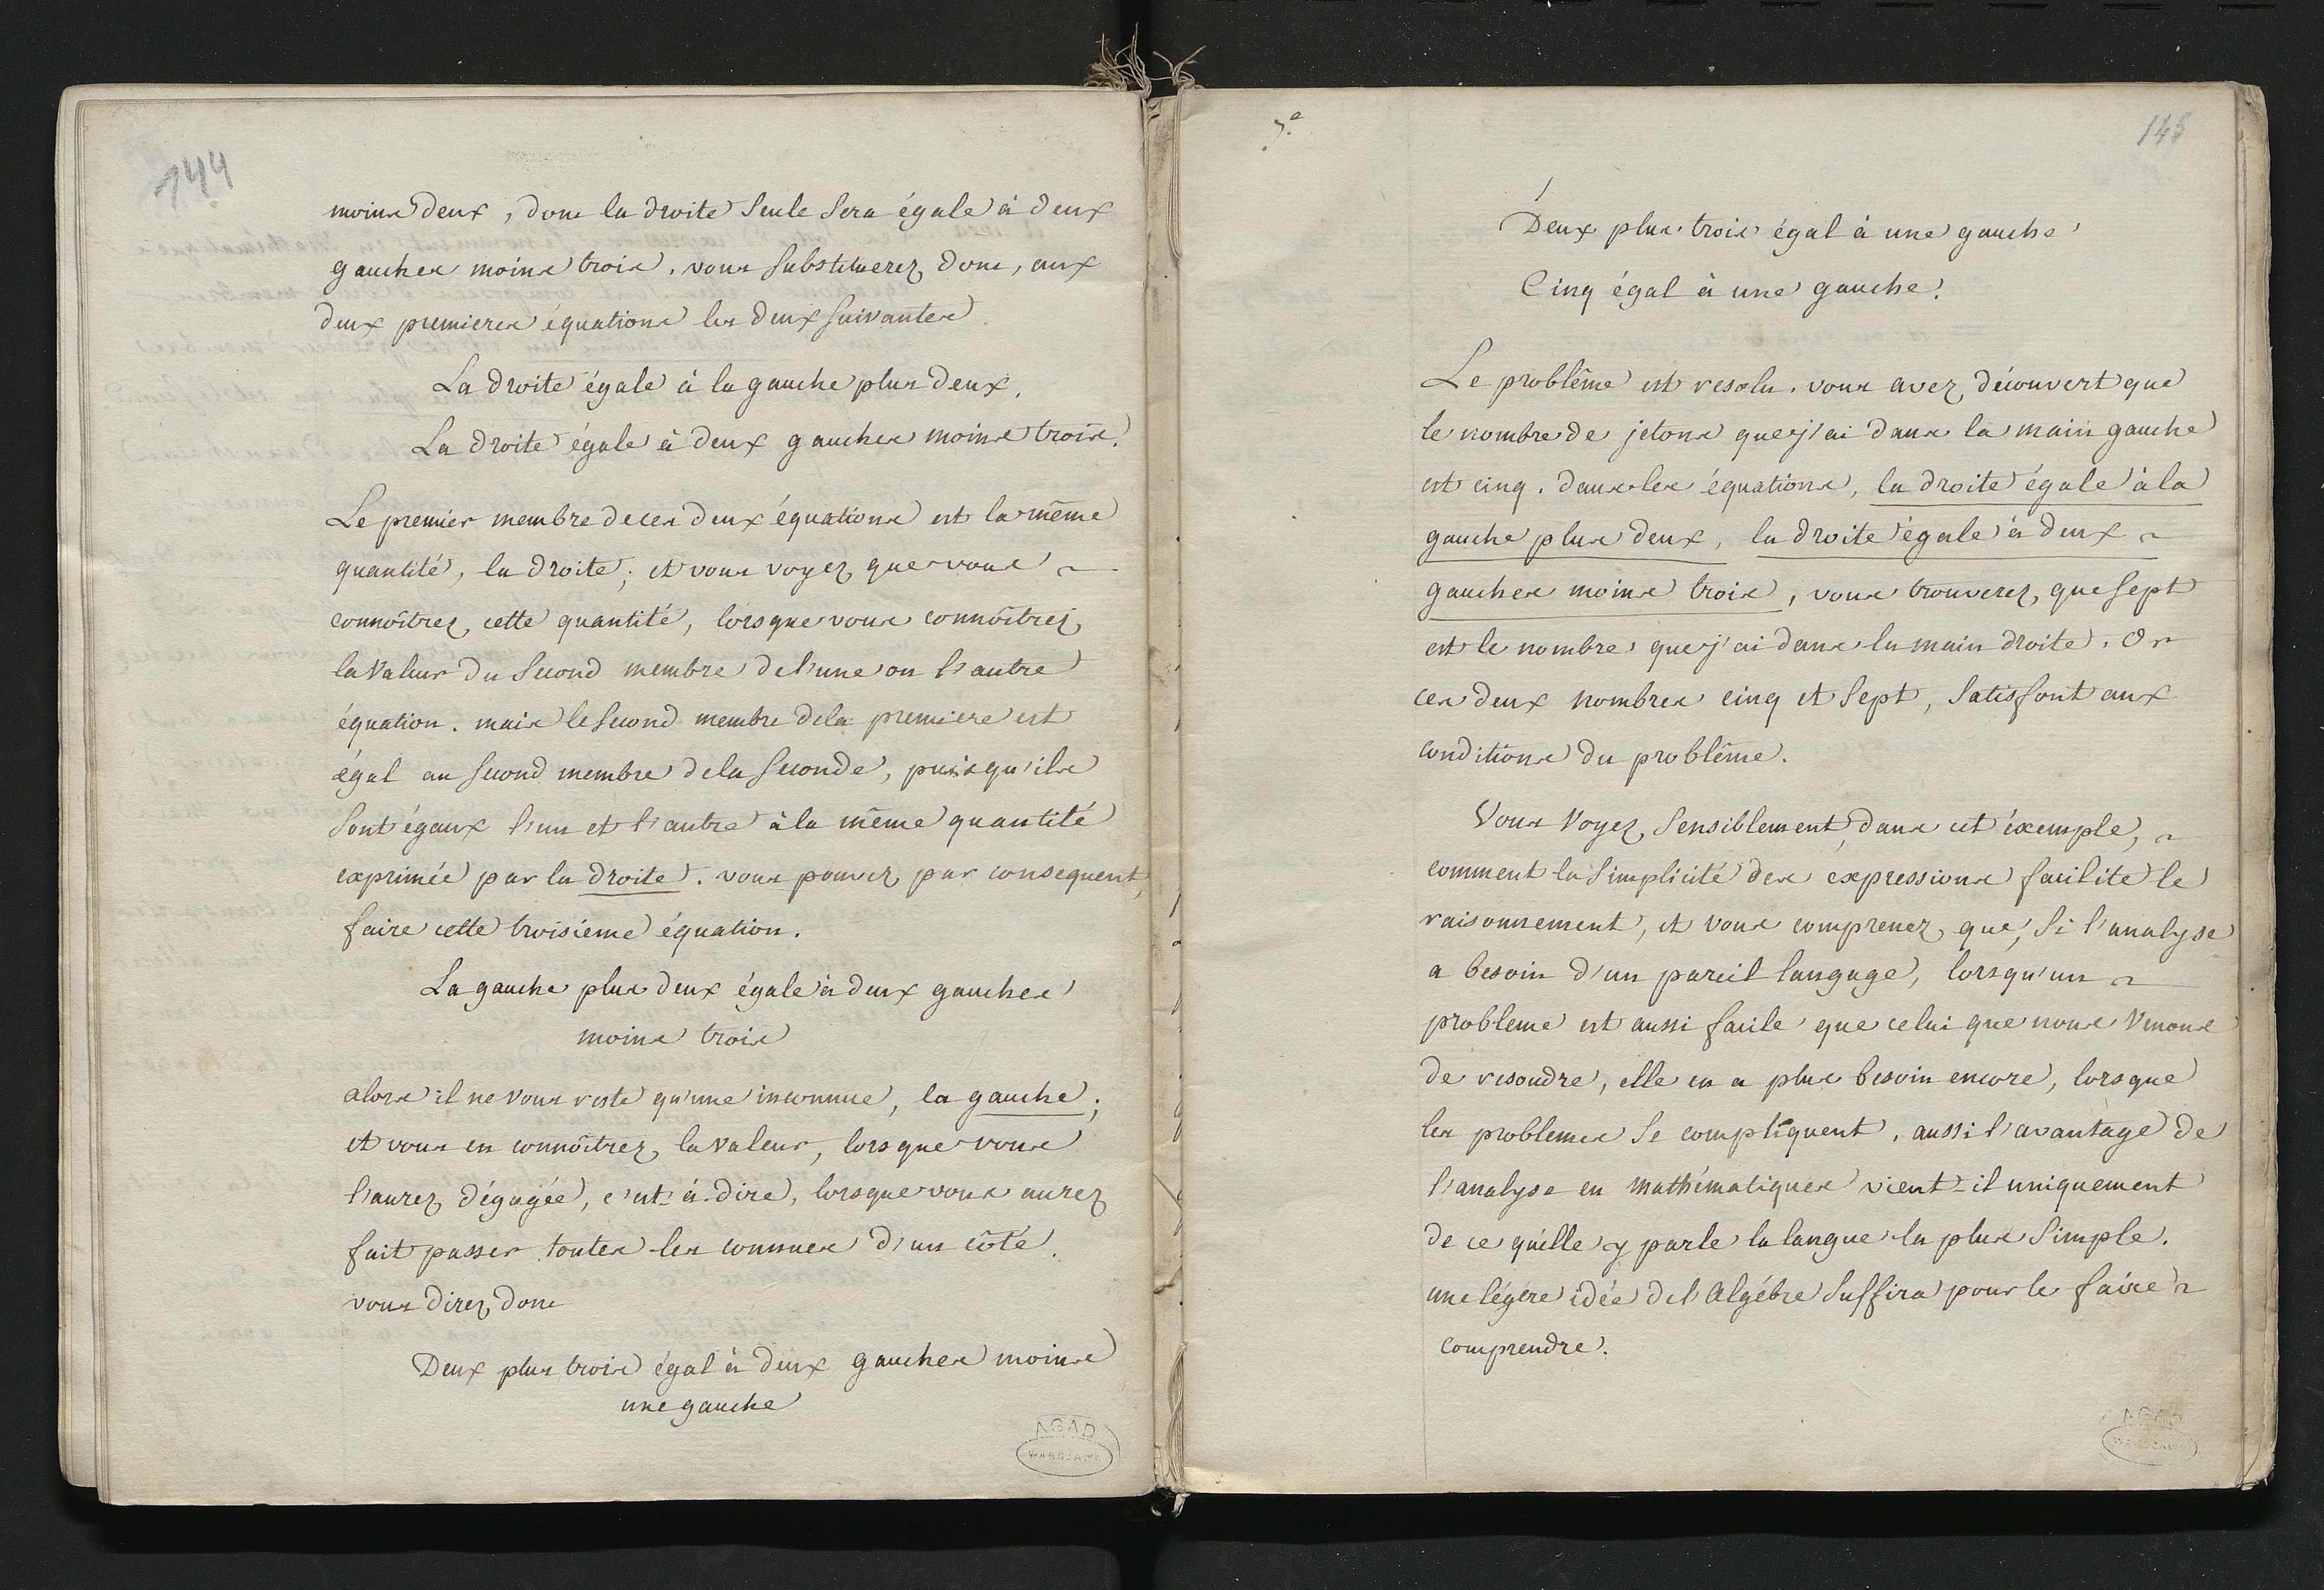 144
moins deux, donc la droite seule sera égale à deux
gauches moins trois. vous substituerez, donc, aux
deux premieres équations les deux suivantes
La droite égale à la gauche plus deux.
La droite égale à deux gauches moins trois.
Le premier membre de ces deux équations est la même
quantité, la droite; et vous voyez que vous
connoîtrez cette quantité, lorsque vous connoîtrez
la valeur du second membre de l'une ou l'autre
équation. mais le second membre de la premiere est
égal au second membre de la seconde, puisqu'ils
sont égaux l'un et l'autre à la même quantité
exprimée par la droite. vous pouvez par consequent,
faire cette troisieme équation.
La gauche plus deux égale à deux gauches
moins trois
alors il ne vous reste qu'une inconnue, la gauche;
et vous en connoîtrez la valeur, lorsque vous
l'aurez dégagée, c'est-à-dire, lorsque vous aurez
fait passer toutes les connues d'un côté.
vous direz donc
Deux plus trois égal à deux gauches moins
une gauche
AGAD
WARSZAWA
145
Deux plus trois égal à une gauche
Cinq égal à une gauche.
Le problême est resolu. vous avez découvert que
le nombre de jetons que j'ai dans la main gauche
est cinq. dans les équations, la droite égale à la
gauche plus deux, la droite égale à deux
gauches moins trois, vous trouverez, que sept
est le nombre que j'ai dans la main droite. Or
ces deux nombres cinq et sept, satisfont aux
conditions du problême.
Vous voyez, sensiblement, dans cet éxemple,
comment la simplicité des expressions facilite le
raisonnement, et vous comprenez que, si l'analyse
a besoin d'un pareil langage, lorsqu'un
probleme est aussi facile que celui que nous venons
de resoudre, elle en a plus besoin encore, lorsque
les problemes se compliquent. aussi l'avantage de
l'analyse en mathématiques vient-il uniquement
de ce qu'elle y parle la langue la plus simple.
une légère idée de l'algébre suffira pour le faire
comprendre.
AGAD
WARSZAWA